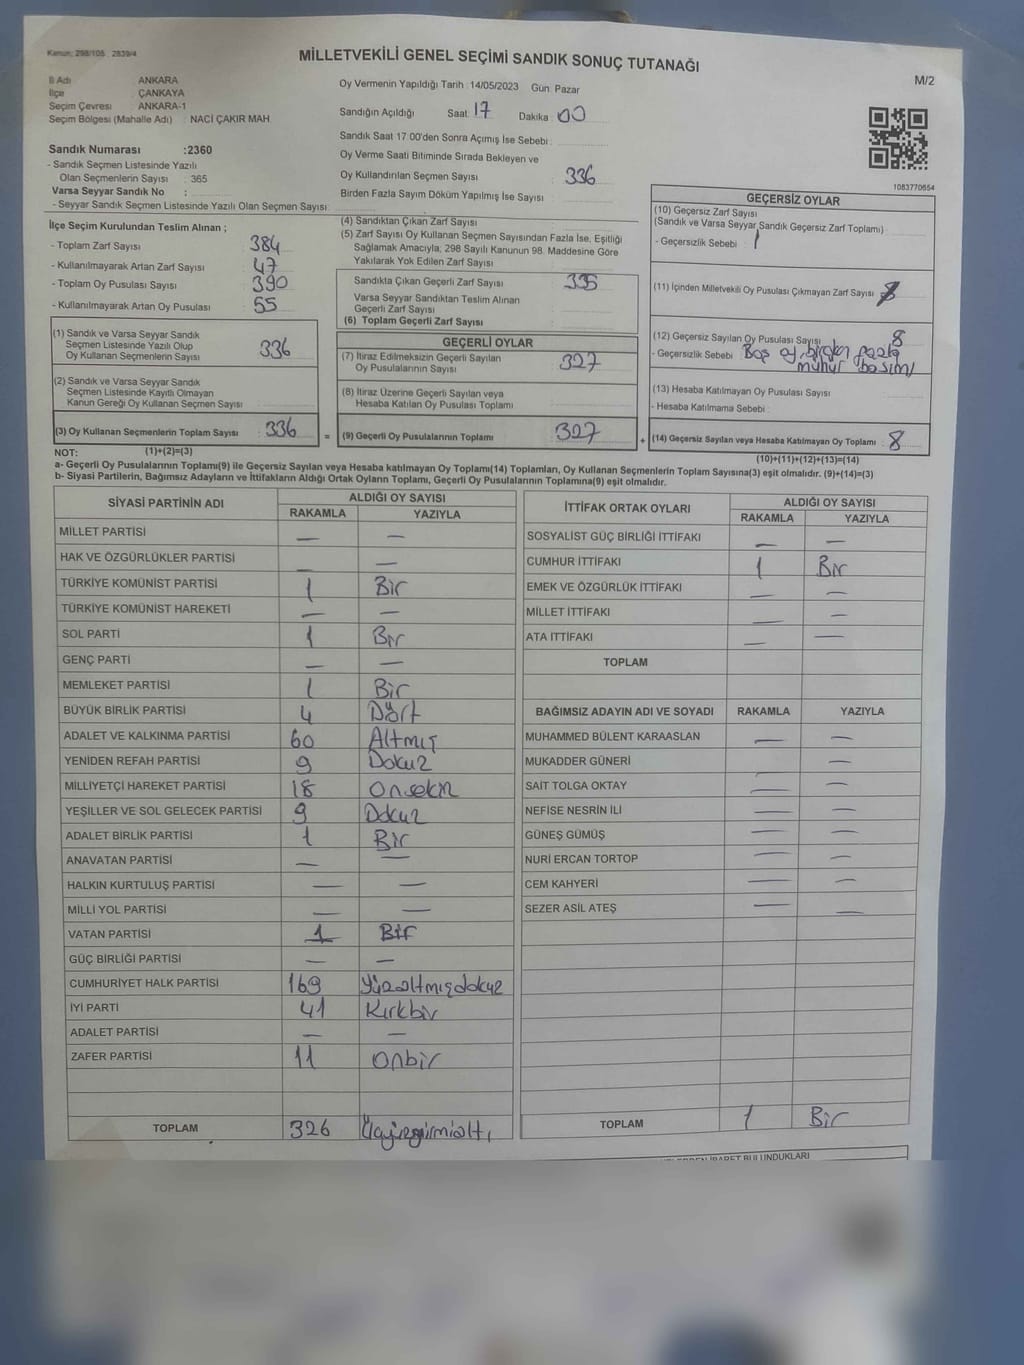 Kanun: 298/105 2839/4
MİLLETVEKİLİ GENEL SEÇİMİ SANDIK SONUÇ TUTANAĞI
M/2
İl Adı : ANKARA
İlçe : ÇANKAYA
Seçim Çevresi : ANKARA-1
Seçim Bölgesi (Mahalle Adı) : NACİ ÇAKIR MAH.
Sandık Numarası :2360
- Sandık Seçmen Listesinde Yazılı
Olan Seçmenlerin Sayısı : 365
Varsa Seyyar Sandık No :
- Seyyar Sandık Seçmen Listesinde Yazılı Olan Seçmen Sayısı:
Oy Vermenin Yapıldığı Tarih : 14/05/2023 Gün: Pazar
Sandığın Açıldığı Saat: 17 Dakika: 00
Sandık Saat 17.00'den Sonra Açımış İse Sebebi :
Oy Verme Saati Bitiminde Sırada Bekleyen ve
Oy Kullandırılan Seçmen Sayısı : 336
Birden Fazla Sayım Döküm Yapılmış İse Sayısı :
1083770654
İlçe Seçim Kurulundan Teslim Alınan ;
- Toplam Zarf Sayısı : 384
- Kullanılmayarak Artan Zarf Sayısı : 47
- Toplam Oy Pusulası Sayısı : 390
- Kullanılmayarak Artan Oy Pusulası : 55
(1) Sandık ve Varsa Seyyar Sandık
Seçmen Listesinde Yazılı Olup
Oy Kullanan Seçmenlerin Sayısı : 336
(2) Sandık ve Varsa Seyyar Sandık
Seçmen Listesinde Kayıtlı Olmayan
Kanun Gereği Oy Kullanan Seçmen Sayısı :
(3) Oy Kullanan Seçmenlerin Toplam Sayısı : 336
(4) Sandıktan Çıkan Zarf Sayısı :
(5) Zarf Sayısı Oy Kullanan Seçmen Sayısından Fazla İse, Eşitliği
Sağlamak Amacıyla; 298 Sayılı Kanunun 98. Maddesine Göre
Yakılarak Yok Edilen Zarf Sayısı :
Sandıkta Çıkan Geçerli Zarf Sayısı : 335
Varsa Seyyar Sandıktan Teslim Alınan
Geçerli Zarf Sayısı :
(6) Toplam Geçerli Zarf Sayısı :
GEÇERLİ OYLAR
(7) İtiraz Edilmeksizin Geçerli Sayılan
Oy Pusulalarının Sayısı : 327
(8) İtiraz Üzerine Geçerli Sayılan veya
Hesaba Katılan Oy Pusulası Toplamı :
= (9) Geçerli Oy Pusulalarının Toplamı : 327
GEÇERSİZ OYLAR
(10) Geçersiz Zarf Sayısı
(Sandık ve Varsa Seyyar Sandık Geçersiz Zarf Toplamı) :
- Geçersizlik Sebebi : 1
(11) İçinden Milletvekili Oy Pusulası Çıkmayan Zarf Sayısı :
(12) Geçersiz Sayılan Oy Pusulası Sayısı : 8
- Geçersizlik Sebebi : Boş oy, birden fazla
mühür basımı
(13) Hesaba Katılmayan Oy Pusulası Sayısı :
- Hesaba Katılmama Sebebi :
+ (14) Geçersiz Sayılan veya Hesaba Katılmayan Oy Toplamı : 8
NOT: (1)+(2)=(3) (10)+(11)+(12)+(13)=(14)
a- Geçerli Oy Pusulalarının Toplamı(9) ile Geçersiz Sayılan veya Hesaba katılmayan Oy Toplamı(14) Toplamları, Oy Kullanan Seçmenlerin Toplam Sayısına(3) eşit olmalıdır. (9)+(14)=(3)
b- Siyasi Partilerin, Bağımsız Adayların ve İttifakların Aldığı Ortak Oyların Toplamı, Geçerli Oy Pusulalarının Toplamına(9) eşit olmalıdır.
SİYASİ PARTİNİN ADI ALDIĞI OY SAYISI
RAKAMLA YAZIYLA
MİLLET PARTİSİ — —
HAK VE ÖZGÜRLÜKLER PARTİSİ — —
TÜRKİYE KOMÜNİST PARTİSİ 1 Bir
TÜRKİYE KOMÜNİST HAREKETİ — —
SOL PARTİ 1 Bir
GENÇ PARTİ — —
MEMLEKET PARTİSİ 1 Bir
BÜYÜK BİRLİK PARTİSİ 4 Dört
ADALET VE KALKINMA PARTİSİ 60 Altmış
YENİDEN REFAH PARTİSİ 9 Dokuz
MİLLİYETÇİ HAREKET PARTİSİ 18 Onsekiz
YEŞİLLER VE SOL GELECEK PARTİSİ 9 Dokuz
ADALET BİRLİK PARTİSİ 1 Bir
ANAVATAN PARTİSİ — —
HALKIN KURTULUŞ PARTİSİ — —
MİLLİ YOL PARTİSİ — —
VATAN PARTİSİ 1 Bir
GÜÇ BİRLİĞİ PARTİSİ — —
CUMHURİYET HALK PARTİSİ 169 Yüzaltmışdokuz
İYİ PARTİ 41 Kırkbir
ADALET PARTİSİ — —
ZAFER PARTİSİ 11 Onbir
TOPLAM 326 Üçyüzyirmialtı
İTTİFAK ORTAK OYLARI ALDIĞI OY SAYISI
RAKAMLA YAZIYLA
SOSYALİST GÜÇ BİRLİĞİ İTTİFAKI — —
CUMHUR İTTİFAKI 1 Bir
EMEK VE ÖZGÜRLÜK İTTİFAKI — —
MİLLET İTTİFAKI — —
ATA İTTİFAKI — —
TOPLAM
BAĞIMSIZ ADAYIN ADI VE SOYADI RAKAMLA YAZIYLA
MUHAMMED BÜLENT KARAASLAN — —
MUKADDER GÜNERİ —
SAİT TOLGA OKTAY — —
NEFİSE NESRİN İLİ — —
GÜNEŞ GÜMÜŞ — —
NURİ ERCAN TORTOP — —
CEM KAHYERİ — —
SEZER ASİL ATEŞ — —
TOPLAM 1 Bir